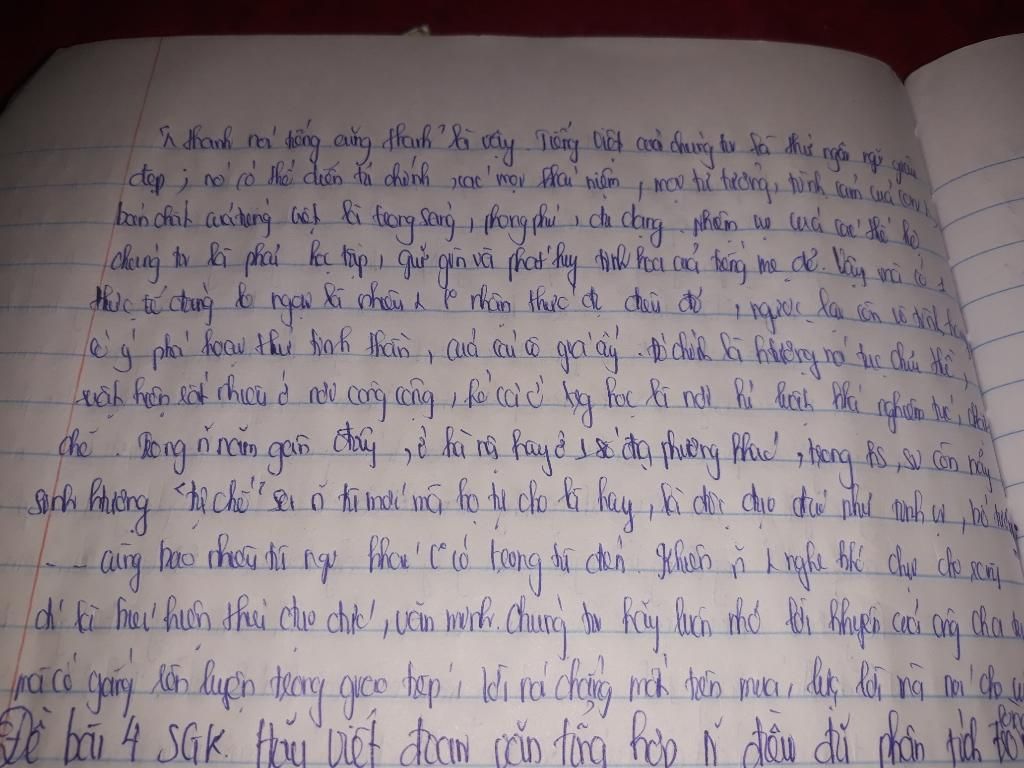 thanh nói tiếng cũng thanh" là vậy. Tiếng Việt của chúng ta là thứ ngôn ngữ giàu
đẹp; nó có thể diễn tả chính xác mọi khái niệm, mọi tư tưởng, tình cảm của
bản chất của tiếng việt là trong sáng, phong phú, dịu dàng. nhiệm vụ của các thế hệ
chúng ta là phải học tập, giữ gìn và phát huy tinh hoa của tiếng mẹ đẻ. Vậy mà có 1
thực tế đáng lo ngại là nhiều nhận thức đc điều đó, ngược lại còn vô tình hay
cố ý phá hoại thứ tinh thần, của cải vô giá ấy. đó chính là hiện tượng nói tục chửi thề,
xuất hiện rất nhiều ở nơi công cộng, kể cả ở học là nơi kỉ luật khá nghiêm túc,
chẽ. Trong ~ năm gần đây, ở hà nội hay ở 1 số địa phương khác, trong HS, SV còn nảy
sinh hiện tượng "tự chế" ra ~ từ mới mà họ tự cho là hay, là độc đáo
... cùng bao nhiêu từ ngữ khác có trong từ điển. Khiến ~ nghe khó chịu cho rằng
đó là biểu hiện thiếu đạo đức, văn minh. Chúng ta hãy luôn nhớ lời khuyên của ông cha ta
mà cố gắng rèn luyện trong giao tiếp, lời nói chẳng mất tiền mua, lựa lời mà nói cho
Đề bài 4 SGK. Hãy viết đoạn văn tổng hợp ~ điều đã phân tích trong